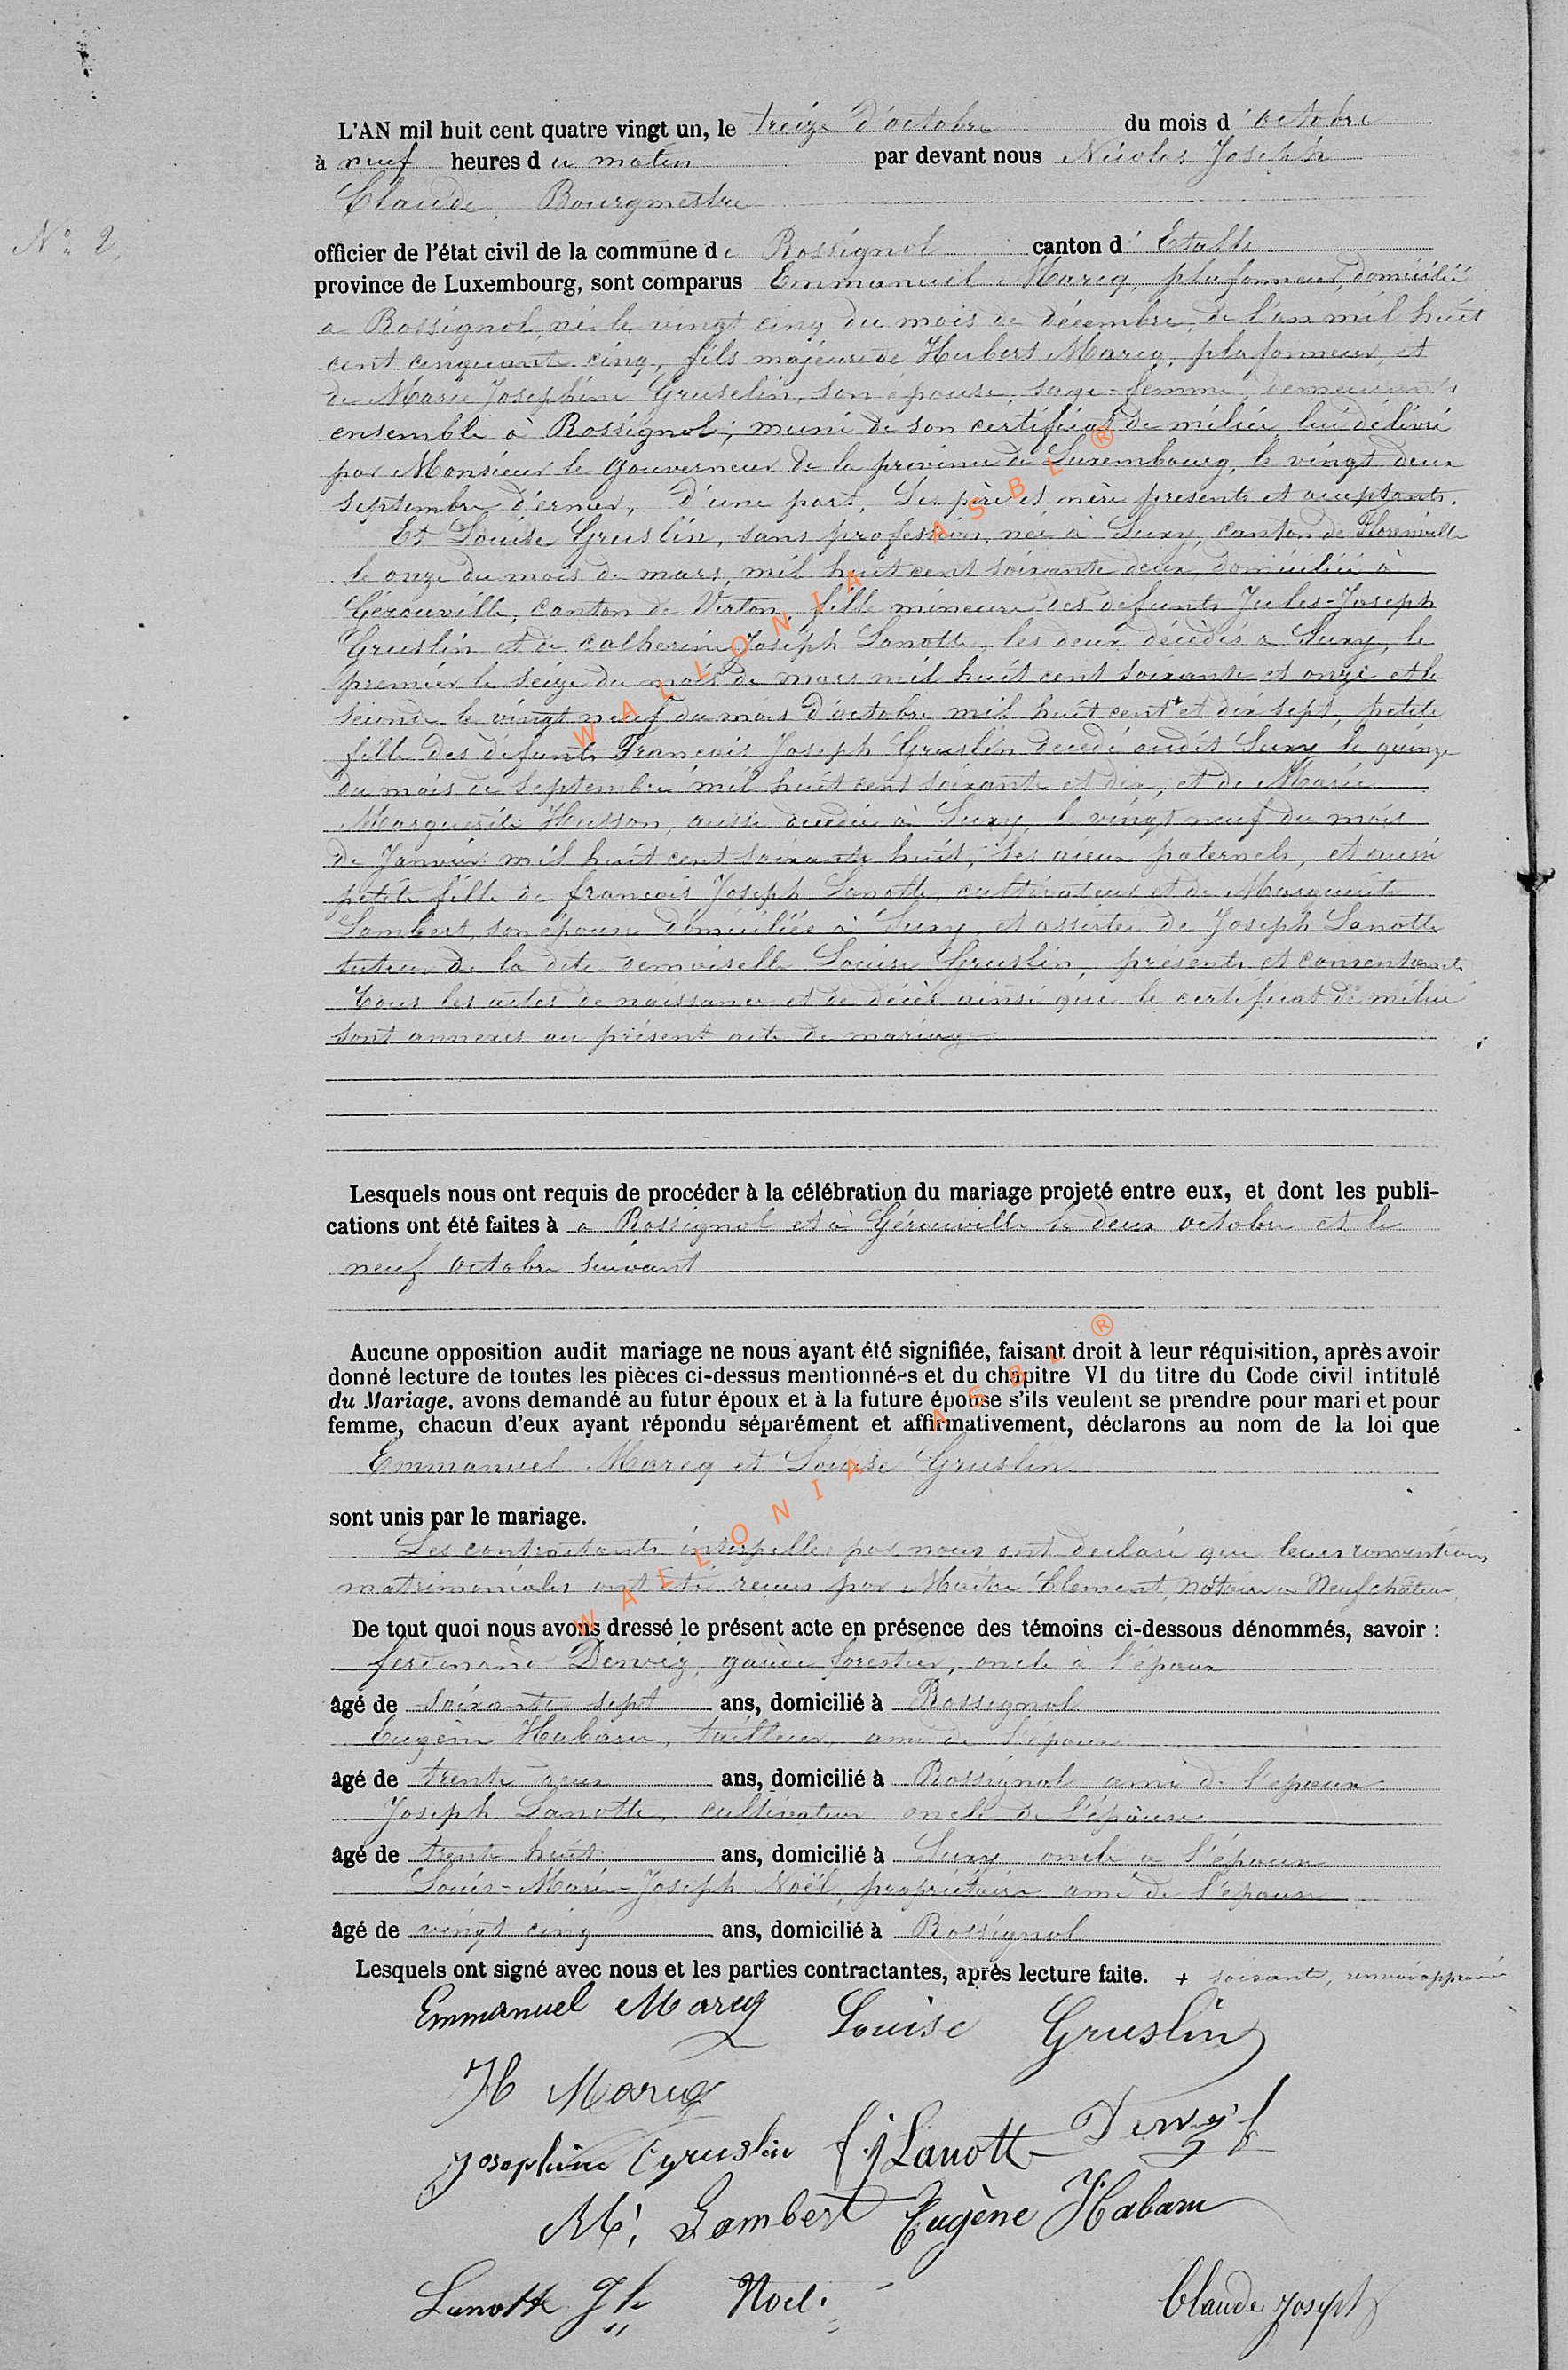 L'AN mil huit cent quatre vingt un, le treize d'octobre du mois d'octobre
à neuf heures du matin par devant nous Nicolas Joseph
Claude, Bourgmestre
N° 2.
officier de l'état civil de la commune de Rossignol canton d'Etalle
province de Luxembourg, sont comparus Emmanuel Marcq, plafonneur, domicilié
a Rossignol, né le vingt cinq du mois de décembre, de l'an mil huit
cent cinquante cinq, fils majeure de Hubert Marcq, plafonneur, et
de Marie Josephine Gruselin, son épouse, sage-femme, demeurants
ensemble à Rossignol; muni de son certificat de milice lui délivré
par Monsieur le Gouverneur de la province de Luxembourg, le vingt deux
septembre dernier, d'une part. Les père et mère presents et acceptants.
Et Louise Gruslin, sans profession, née à Suxy, canton de Florenville
le onze du mois de mars, mil huit cent soixante deux, domiciliée à
Gérouville, canton de Virton, fille mineure des defunts Jules-Joseph
Gruslin et de Catherine Joseph Lanotte, les deux décédés a Suxy, le
premier le seize du mois de mars mil huit cent soixante et onze et le
second le vingt neuf du mois d'octobre mil huit cent + et dix sept, petite
fille des défunts François Joseph Gruslin décédé audit Suxy le quinze
du mois de Septembre mil huit cent soixante et dix, et de Marie
Marguerite Husson, aussi décédée à Suxy, le vingt neuf du mois
de Janvier mil huit cent soixante huit, ses aïeux paternels, et aussi
petite fille de françois Joseph Lanotte, cultivateur et de Marguerite
Lambert, son épouse domiciliés à Suxy, et assistée de Joseph Lanotte
tuteur de la dite demoiselle Louise Gruslin, présents et consentants
Tous les actes de naissance et de décès ainsi que le certificat de milice
sont annexés au présent acte de mariage
Lesquels nous ont requis de procéder à la célébration du mariage projeté entre eux, et dont les publi-
cations ont été faites à a Rossignol et à Gérouville le deux octobre et le
neuf octobre suivant
Aucune opposition audit mariage ne nous ayant été signifiée, faisant droit à leur réquisition, après avoir
donné lecture de toutes les pièces ci-dessus mentionnées et du chapitre VI du titre du Code civil intitulé
du Mariage, avons demandé au futur époux et à la future épouse s'ils veulent se prendre pour mari et pour
femme, chacun d'eux ayant répondu séparément et affirmativement, déclarons au nom de la loi que
Emmanuel Marcq et Louise Gruslin
sont unis par le mariage.
Les contractants interpellés par nous ont déclaré que leurs conventions
matrimoniales ont été reçues par Maitre Clement, Notaire a Neufchâteau
De tout quoi nous avons dressé le présent acte en présence des témoins ci-dessous dénommés, savoir :
ferdinand Derwig, garde forestier, oncle à l'époux
âgé de soixante sept ans, domicilié à Rossignol
Eugène Habaru, tailleur, ami de l'époux
âgé de trente deux ans, domicilié à Rossignol ami de l'époux
Joseph Lanotte, cultivateur oncle de l'épouse
âgé de trente huit ans, domicilié à Suxy oncle a l'épouse
Louis-Marie-Joseph Noël, propriétaire ami de l'époux
âgé de vingt cinq ans, domicilié à Rossignol
Lesquels ont signé avec nous et les parties contractantes, après lecture faite. + soixante, renvoi approuvé
Emmanuel Marcq Louise Gruslin
H Marcq
Josephine Gruslin f j Lanotte Derwig f
M. Lambert Eugène Habaru
Lanotte Jh Noël. Claude Joseph
WALLONIA ASBL ®
WALLONIA ASBL ®